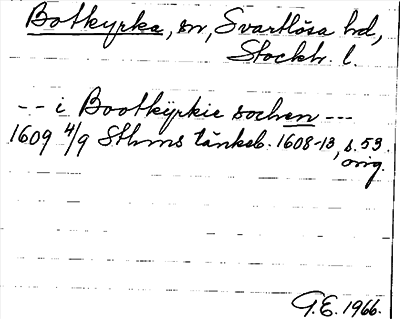 Botkyrka, sn, Svartlösa hd,
Stockh. l.
-- i Bootkÿrkie sochen ---
1609 4/9 Sthms tänkeb. 1608-13, s. 53.
orig.
G.E. 1966.